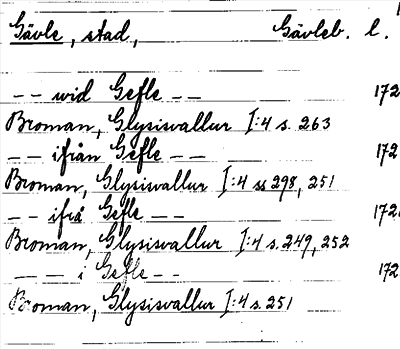 Gävle, stad, Gävleb. l.
-- wid Gefle -- 172
Broman, Glysisvallur I:4 s. 263
-- ifrån Gefle -- 172
Broman, Glysisvallur I:4 ss 298, 251
-- ifrå Gefle -- 172
Broman, Glysisvallur I:4 s. 249, 252
-- - i Gefle -- 172
Broman, Glysisvallur I:4 s. 251